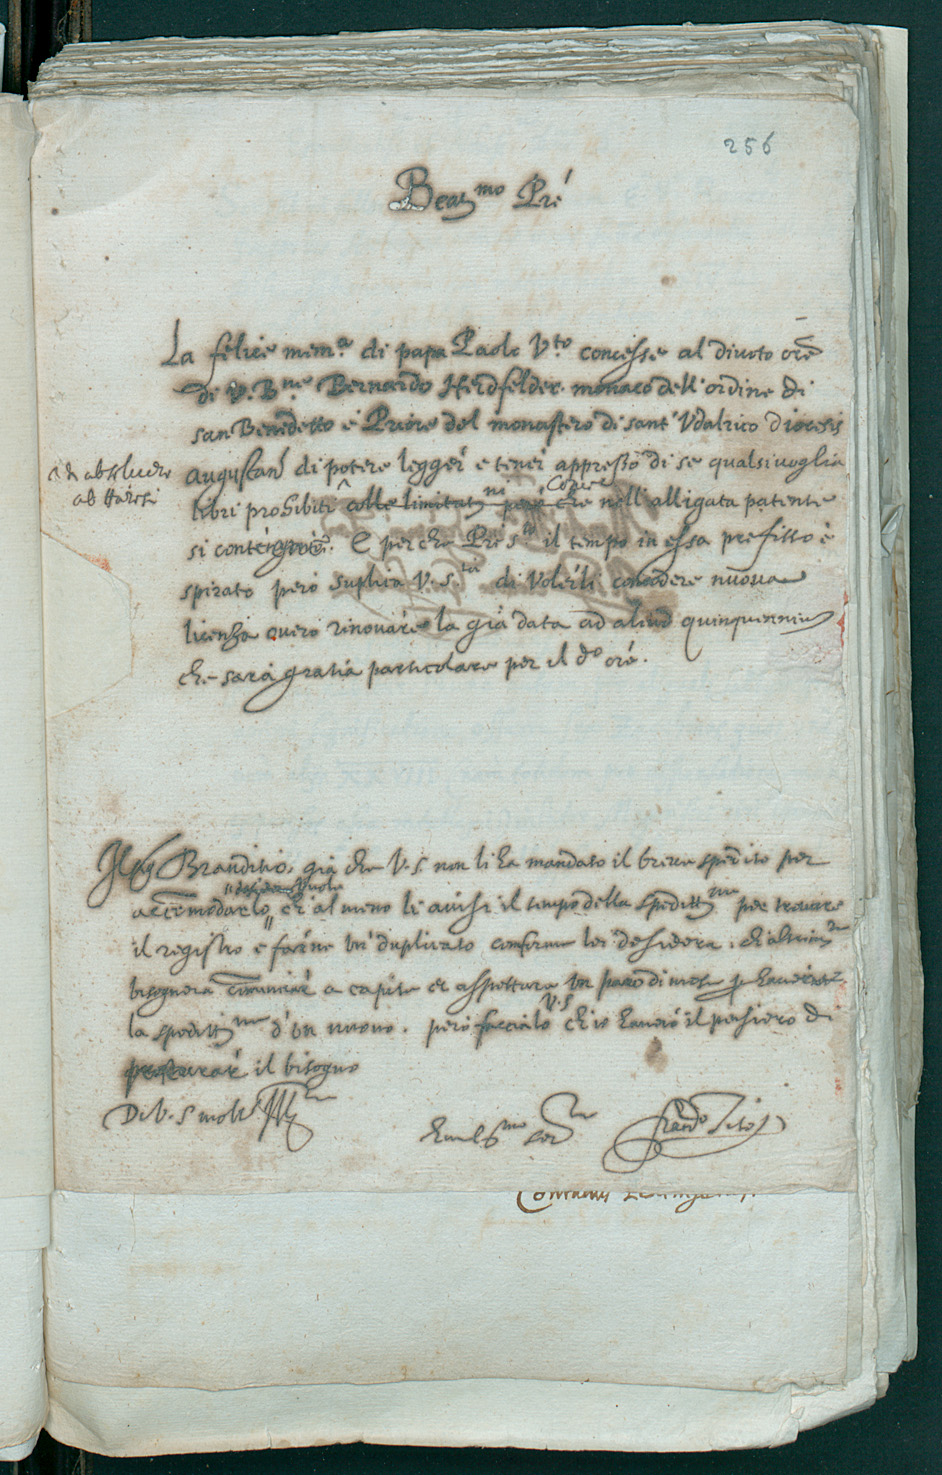 256
Beat.mo Pre'
La felice mem.a di papa Paolo V.to concesse al divoto ore
di V. B.ne Bernardo Herdfelder monaco dell'ordine di
san Benedetto e Priore del monastero di sant' Vdalrico Diocesis
Augustan' di potere legger e tener' appresso di se qualsivoglia
et de absoluere
ab Haeresi
libri prohibiti colle limitat.ni però che nell'alligata patente
si E perche Pre S.to il tempo in essa prefisso è
spirato però suplica V. S.tà di volerli concedere nuoua
licenza overo rinovare la già data ad aliud quinquennium
che sarà gratia particolare per il d.o ore.
Branditio, già che V. S. non li ha mandato il breve spedito per
accomodarlo, ch'al meno li avisi il tempo della spedit.ne per trovare
il registro e farne un' duplicato conforme lei desidera. ch'altrim.te
bisognera cominciar' a capite et aspettare un paro di mesi
la spedit.ne d'un nuovo. però faccialo V.S ch'io haverò il pensiero di
procurar' il bisogno
Di V. S molt' Ill.re